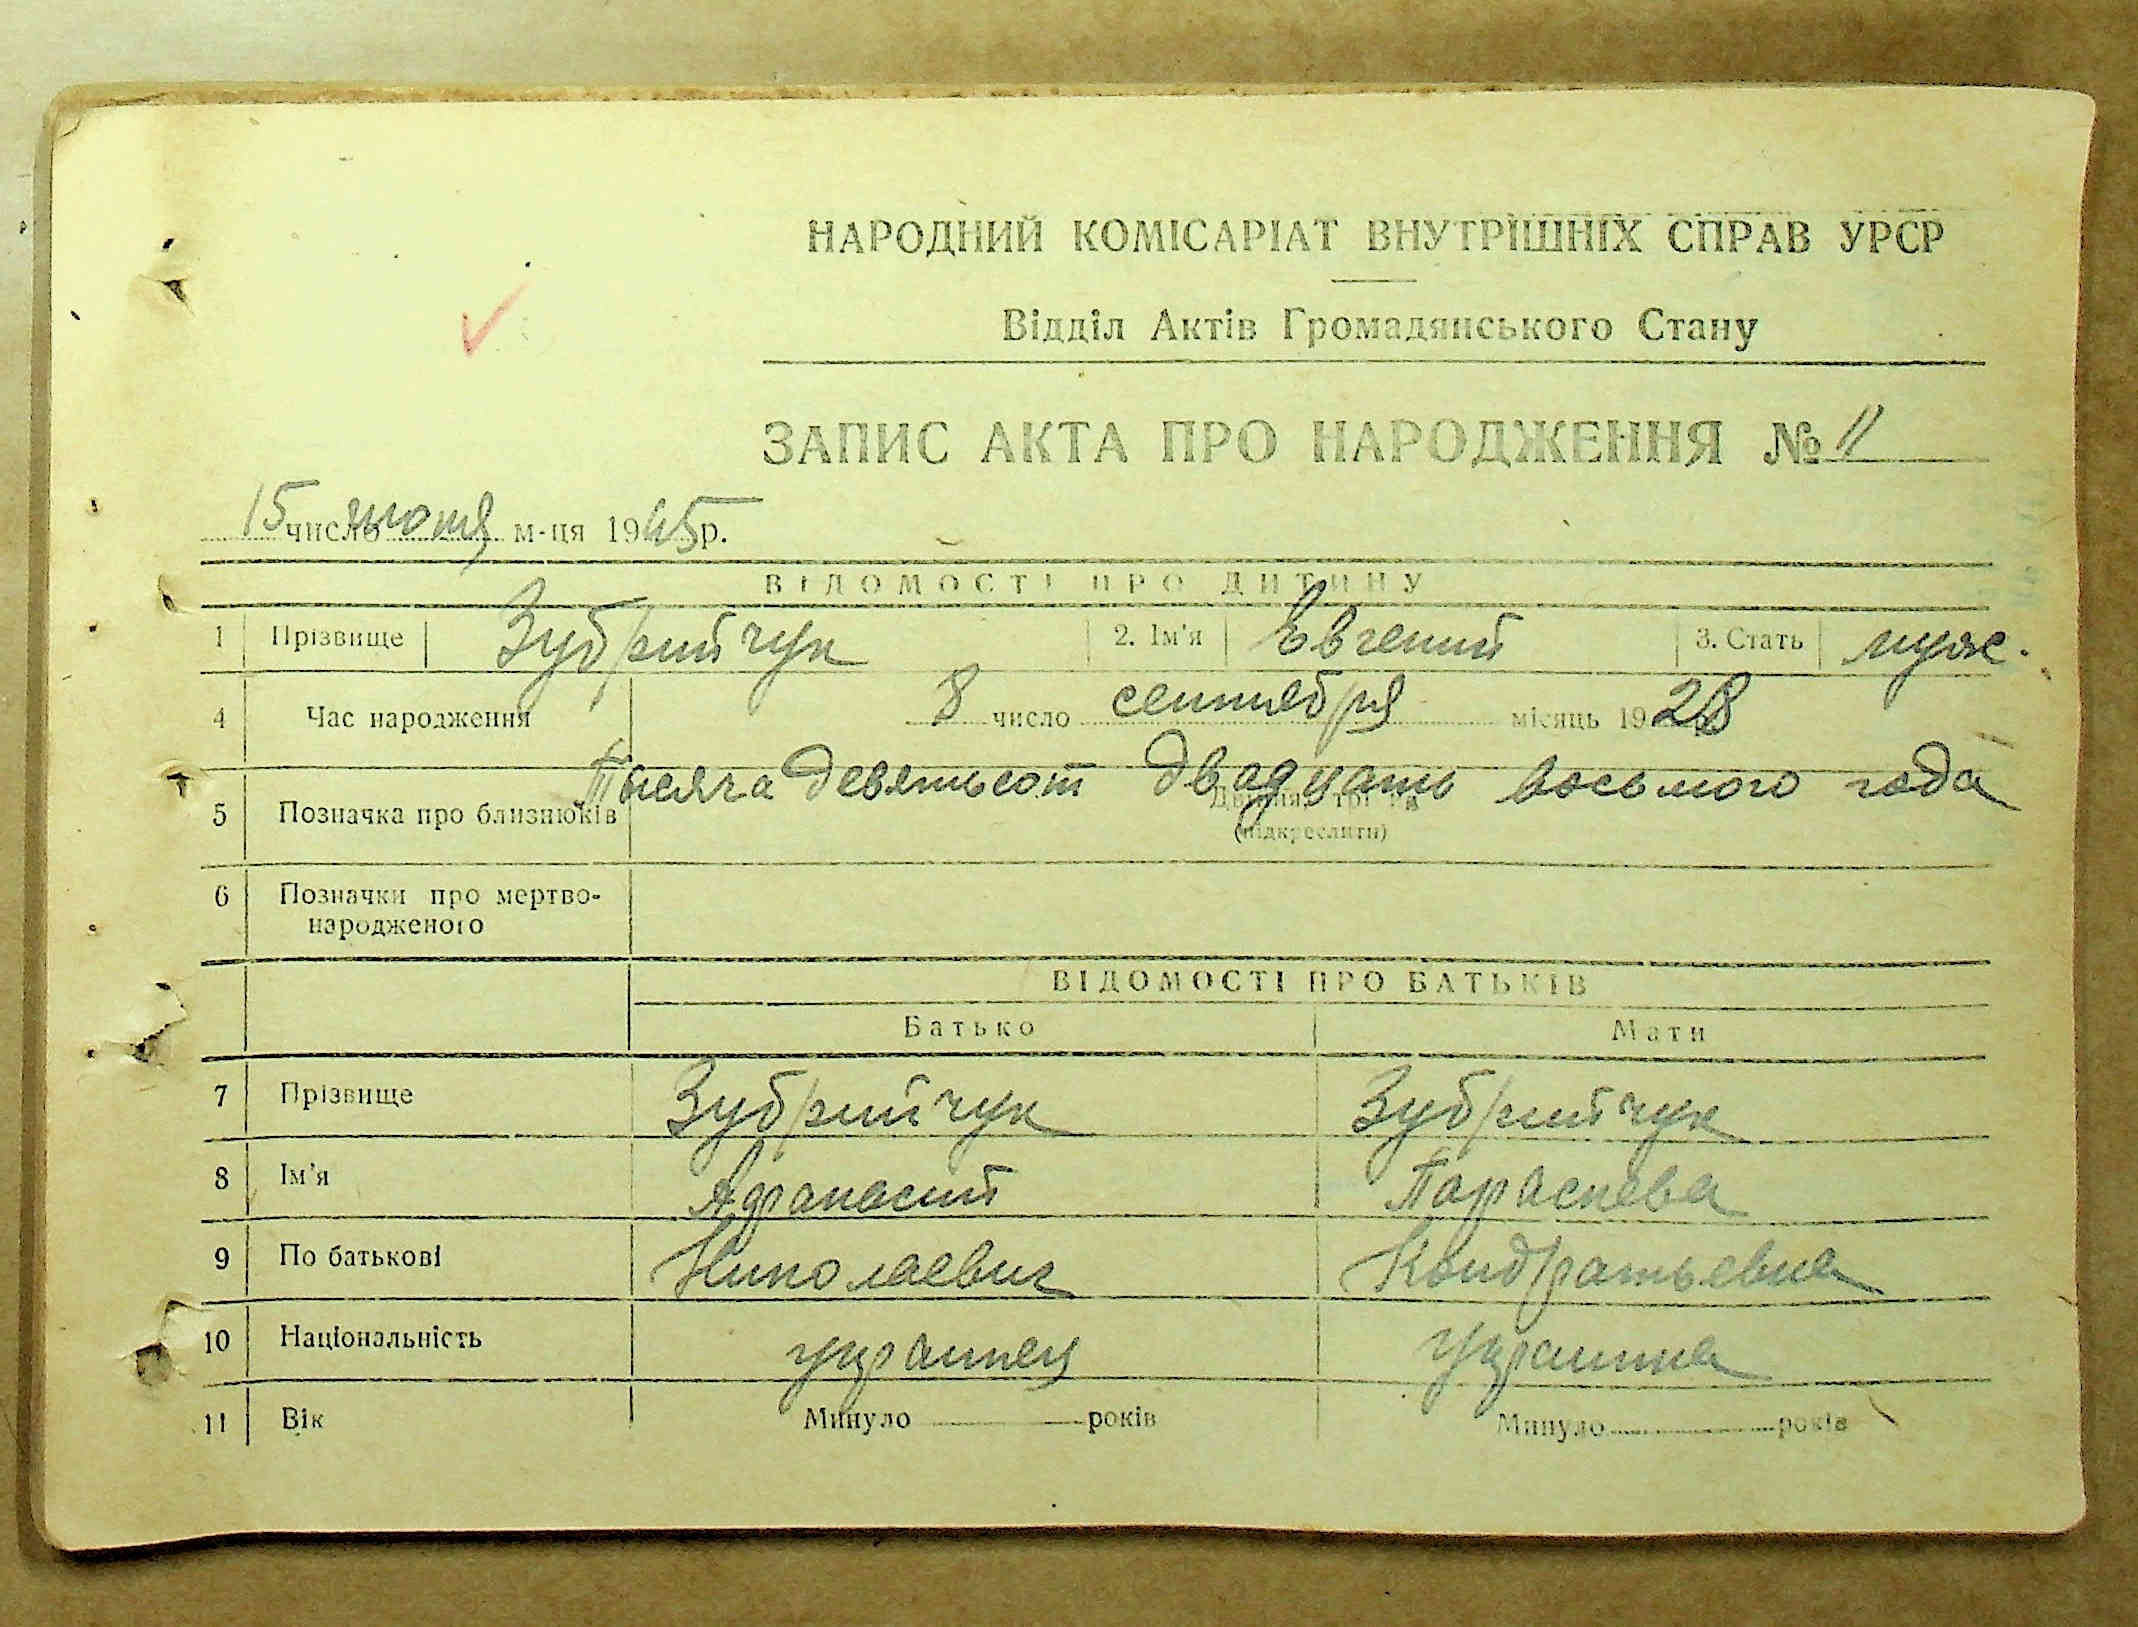 НАРОДНИЙ КОМІСАРІАТ ВНУТРІШНІХ СПРАВ УРСР
Відділ Актів Громадянського Стану
ЗАПИС АКТА ПРО НАРОДЖЕННЯ № 11
15 число июня м-ця 1945 р.
ВІДОМОСТІ ПРО ДИТИНУ
1 Прізвище Зубрийчук 2. Ім'я Евгений 3. Стать муж.
4 Час народження 8 число сентября місяць 1928
Тысяча девятьсот двадцать восьмого года
5 Позначка про близнюків
(підкреслити)
6 Позначки про мертво-
народженого
ВІДОМОСТІ ПРО БАТЬКІВ
Батько Мати
7 Прізвище Зубрийчук Зубрийчук
8 Ім'я Афанасий Параскева
9 По батькові Николаевич Кондратьевна
10 Національність украинец украинка
11 Вік Минуло років Минуло років